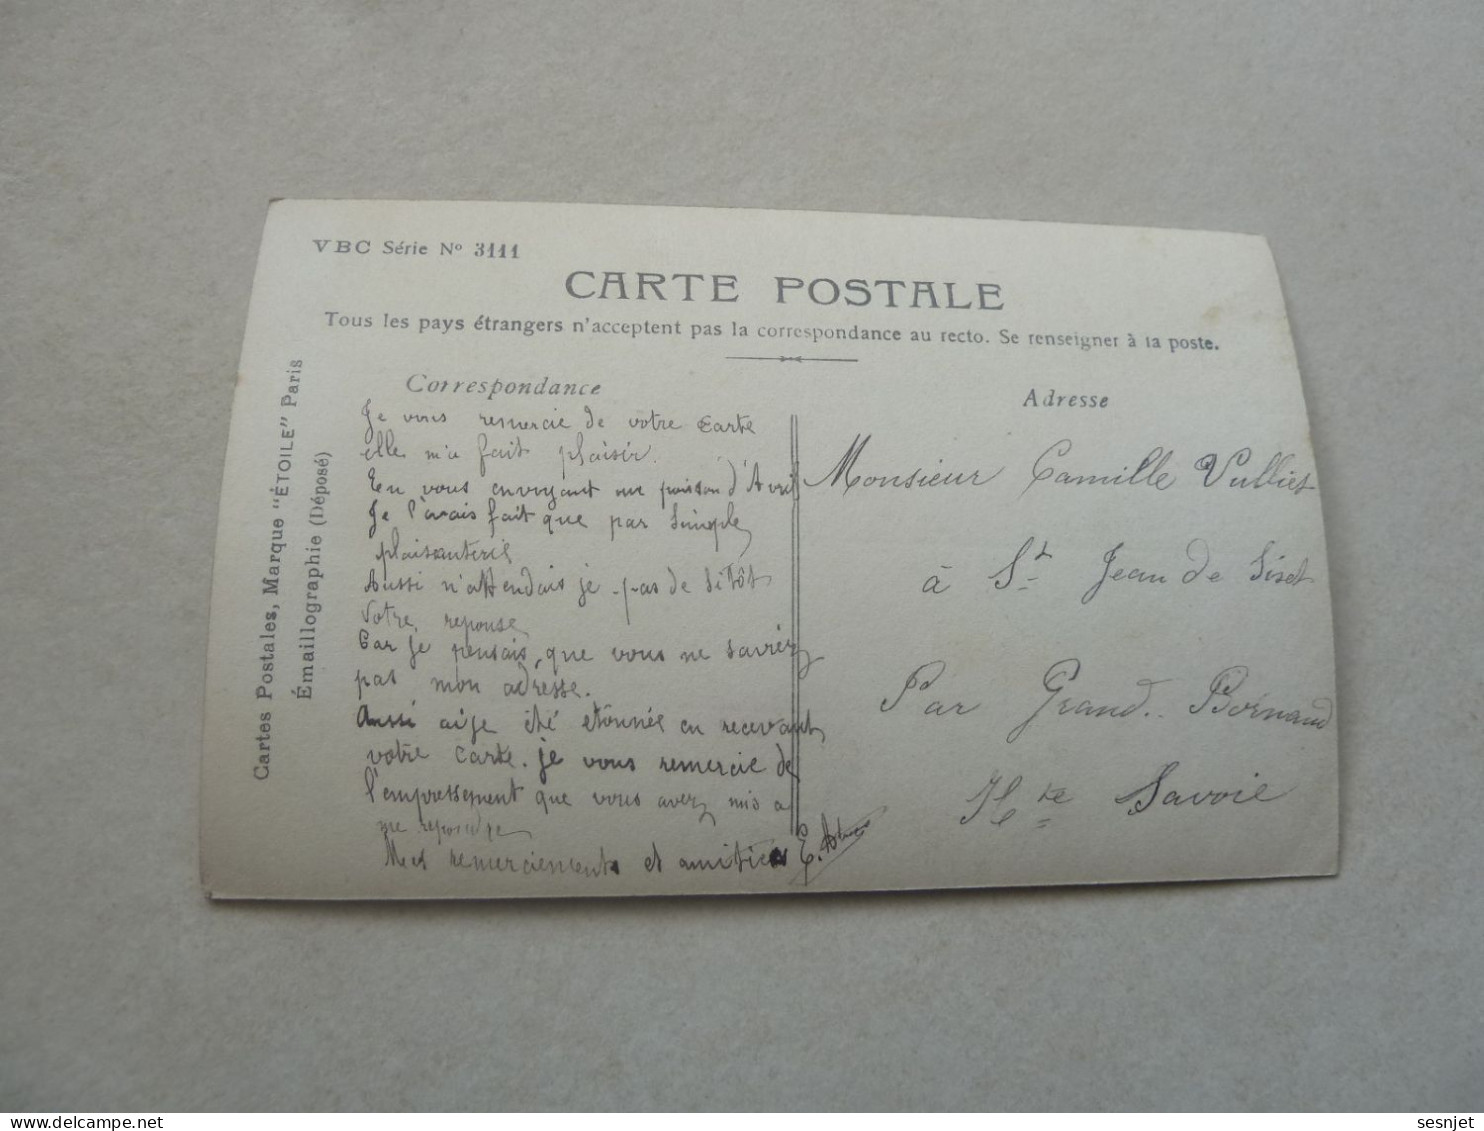 VBC Série Nº 3111
CARTE POSTALE
Tous les pays étrangers n'acceptent pas la correspondance au recto. Se renseigner à la poste.
Cartes Postales, Marque "ÉTOILE" Paris
Émaillographie (Déposé)
Correspondance
Je vous remercie de votre carte
elle m'a fait plaisir.
En vous envoyant un poisson d'Avril
Je l'avais fait que par simple
plaisanterie
Aussi n'attendais je pas de sitôt
votre reponse
Car je pensais, que vous ne saviez
pas mon adresse.
Aussi aije été étonnée en recevant
votre carte. je vous remercie de
l'empressement que vous avez mis a
me repondre
Mes remerciements et amitiés E.
Adresse
Monsieur Camille Vulliet
à St Jean de Sixt
Par Grand. Bornand
Hte Savoie
sesnjet
delcampe.net